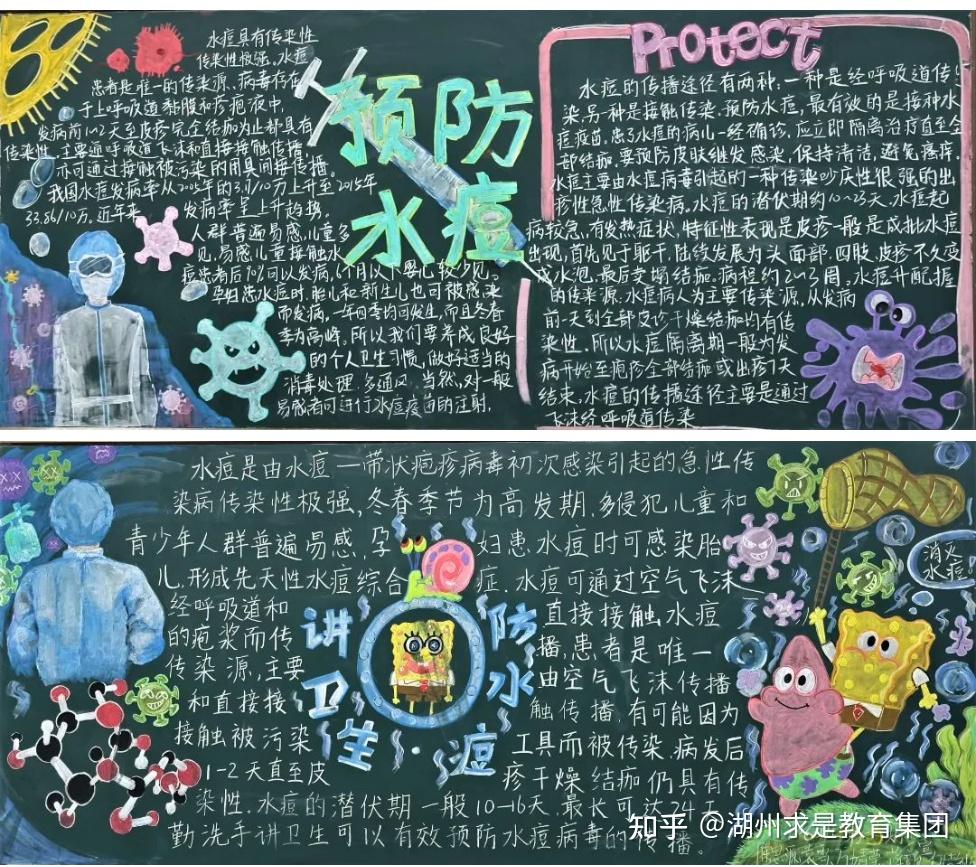 水痘具有传染性
传染性极强。水痘
患者是唯一的传染源。病毒存在
于上呼吸道黏膜和疱疹液中,
发病前1~2天至皮疹完全结痂为止都具有
传染性,主要通呼吸道飞沫和直接接触传播
亦可通过接触被污染的用具间接传播。
我国水痘发病率从2005年的3.17/10万上升至2015年
33.86/10万。近年来 发病率呈上升趋势。
人群普遍易感,儿童多
见,易感儿童接触水
痘患者后90%可以发病,6个月以下婴儿较少见。
孕妇患水痘时,胎儿和新生儿也可被感染
而发病。一年四季均可发生,而且冬春
季为高峰。所以我们要养成良好
的个人卫生习惯,做好适当的
消毒处理,多通风,当然,对一般
易感者可进行水痘疫苗的注射.
预防
水痘
Protect
水痘的传播途径有两种:一种是经呼吸道传
染,另一种是接触传染.预防水痘,最有效的是接种水
痘疫苗,患了水痘的病儿一经确诊,应立即隔离治疗直至全
部结痂,要预防皮肤继发感染,保持清洁,避免瘙痒.
水痘主要由水痘病毒引起的一种传染 性很强的出
疹性急性传染病.水痘的潜伏期约10~23天.水痘起
病较急,有发热症状,特征性表现是皮疹一般是成批水痘
出现,首先见于躯干,陆续发展为头面部,四肢,皮疹不久变
成水泡,最后变塌结痂,病程约2~3周.水痘
的传染源.水痘病人为主要传染源,从发病
前一天到全部皮诊干燥结痂均有传
染性.所以水痘隔离期一般为发
病开始至疱疹全部结痂或出疹7天
结束.水痘的传播途径主要是通过
飞沫经呼吸道传染
水痘是由水痘—带状疱疹病毒初次感染引起的急性传
染病传染性极强,冬春季节为高发期,多侵犯儿童和
青少年人群普遍易感、孕 妇患水痘时可感染胎
儿,形成先天性水痘综合 症.水痘可通过空气飞沫
经呼吸道和 直接接触,水痘
的疱浆而传 播,患者是唯一
传染源,主要 由空气飞沫传播
和直接接 触传播,有可能因为
接触被污染 工具而被传染.病发后
1-2天直至皮 疹干燥结痂仍具有传
染性.水痘的潜伏期一般10-16天,最长可达24天
勤洗手讲卫生可以有效预防水痘病毒的传播。
讲卫生·防水痘
消灭
水痘!
知乎 @湖州求是教育集团